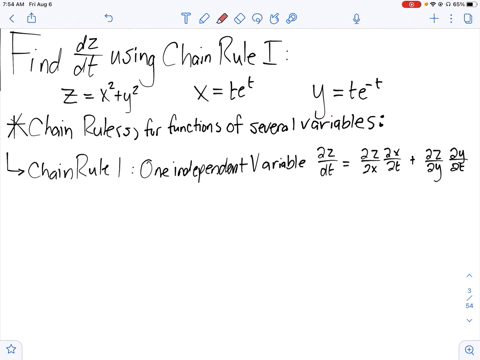 7:54 AM Fri Aug 6 65%
Find dz/dt using Chain Rule I:
z = x²+y² x = te^t y = te^-t
*Chain Rule(s) for functions of several variables:
↳ Chain Rule 1: One independent Variable ∂z/dt = ∂z/∂x ∂x/∂t + ∂z/∂y ∂y/∂t
3
/
54